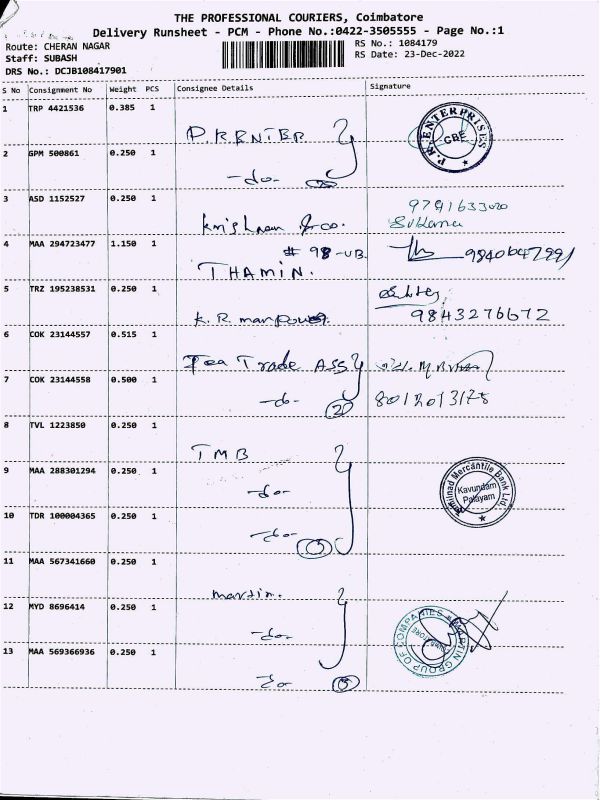 THE PROFESSIONAL COURIERS, Coimbatore
Delivery Runsheet - PCM - Phone No.:0422-3505555 - Page No.:1
Route: CHERAN NAGAR
RS No.: 1084179
Staff: SUBASH
RS Date: 23-Dec-2022
DRS No.: DCJB108417901
S No Consignment No Weight PCS Consignee Details Signature
1 TRP 4421536 0.385 1
P.R ENTER
P.R. ENTERPRISES
CBE
2 GPM 500861 0.250 1
-do-
3 ASD 1152527 0.250 1
Krishnan & co.
4 MAA 294723477 1.150 1
# 98-UB.
THAMIN.
5 TRZ 195238531 0.250 1
K.R. manpower.
9843276672
6 COK 23144557 0.515 1
Tea Trade ASS
7 COK 23144558 0.500 1
-do-
2
8 TVL 1223850 0.250 1
TMB
9 MAA 288301294 0.250 1
-do-
Tamilnad Mercantile Bank Ltd.
Kavundam
Palayam
10 TDR 100004365 0.250 1
-do-
11 MAA 567341660 0.250 1
martin.
12 MYD 8696414 0.250 1
-do-
MARTIN GROUP OF COMPANIES
13 MAA 569366936 0.250 1
-do-